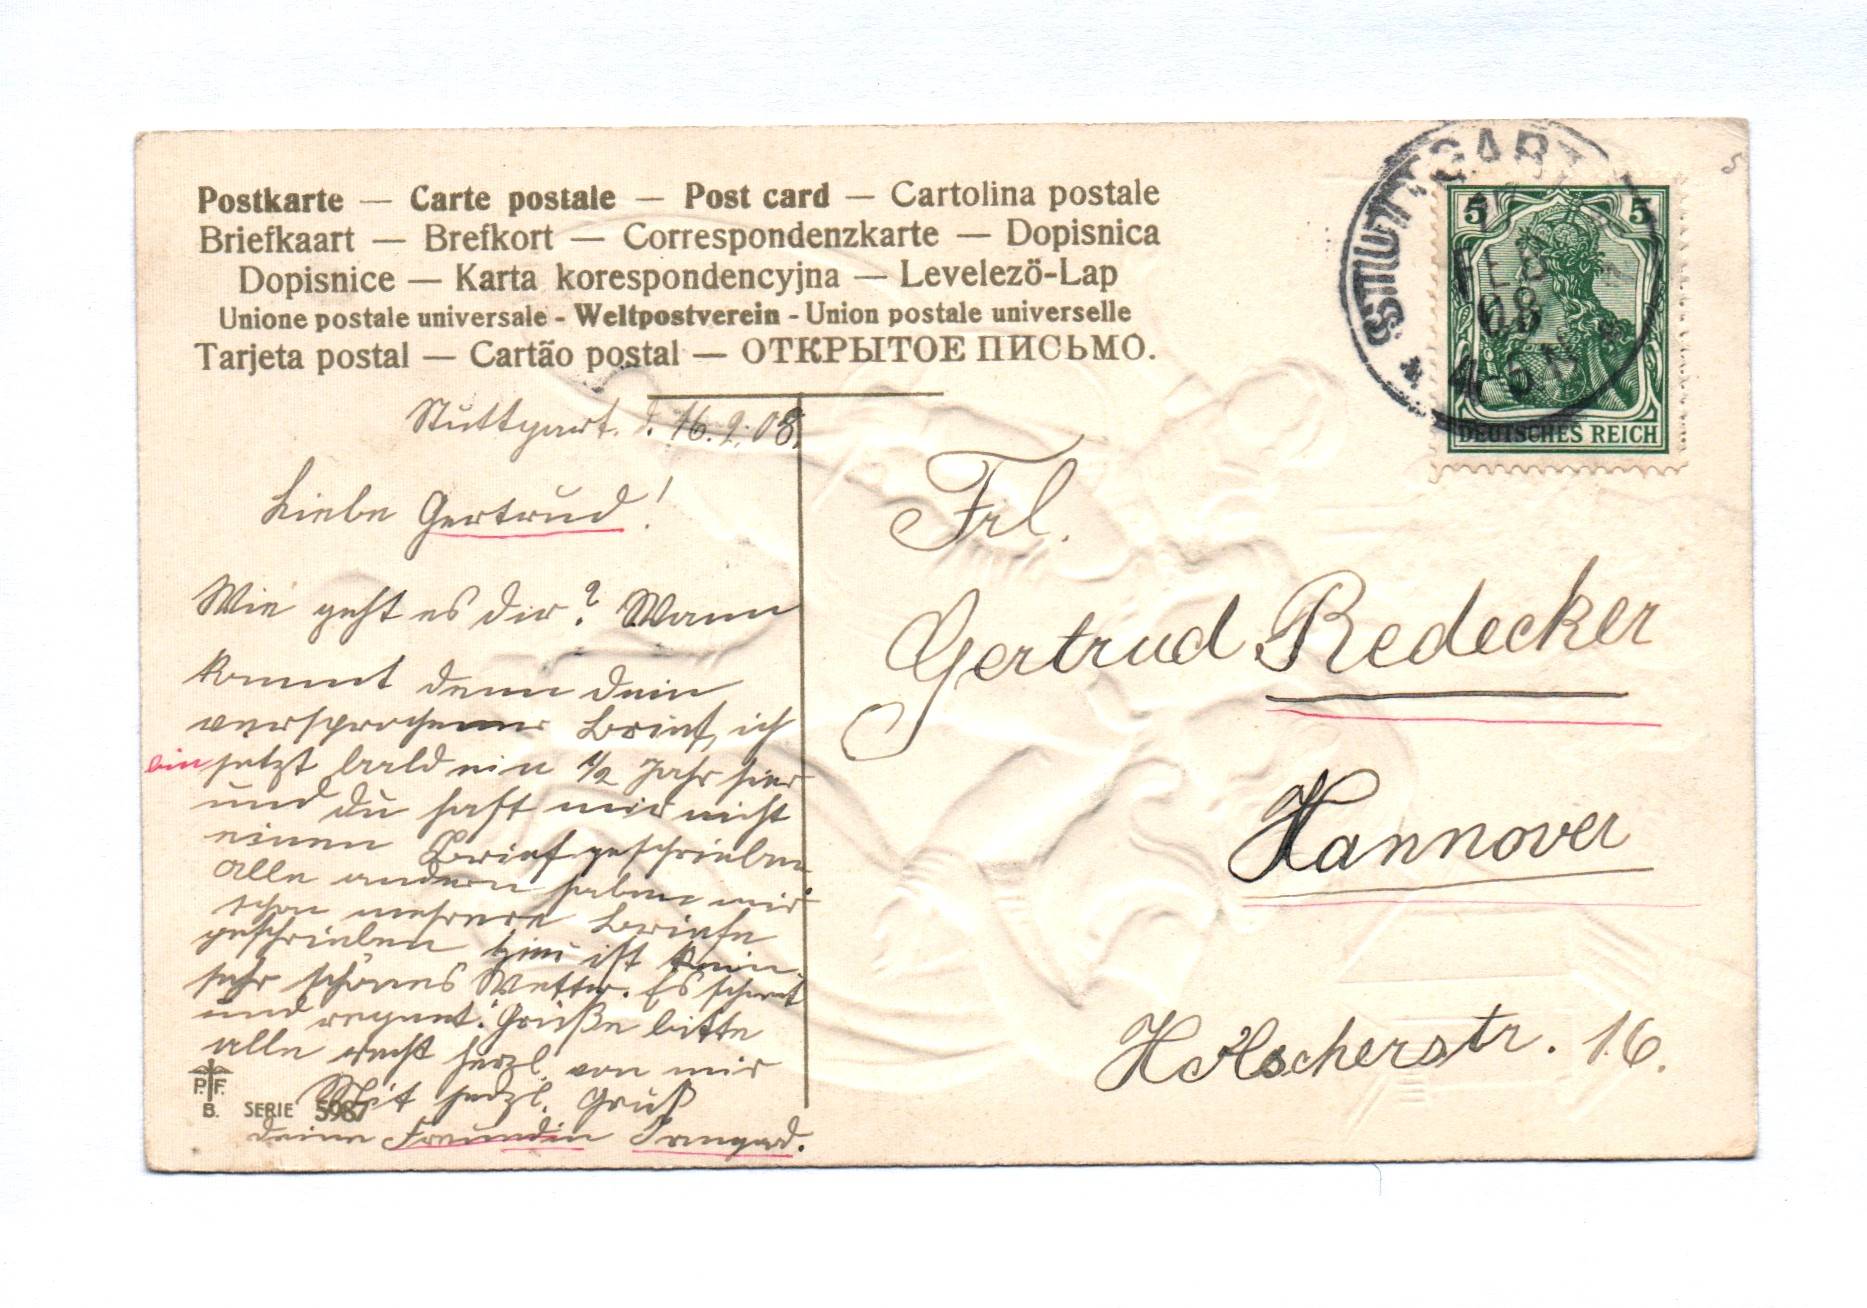 Postkarte — Carte postale — Post card — Cartolina postale
Briefkaart — Brefkort — Correspondenzkarte — Dopisnica
Dopisnice — Karta korespondencyjna — Levelezö-Lap
Unione postale universale - Weltpostverein - Union postale universelle
Tarjeta postal — Cartão postal — ОТКРЫТОЕ ПИСЬМО.
STUTTGART
FEB
08
4-5N
5 5
DEUTSCHES REICH
Stuttgart. d. 16.2.08.
Liebe Gertrud!
Wie geht es dir? Wann
kommt denn dein
versprochener Brief, ich
bin jetzt bald ein 1/2 Jahr hier
und du hast mir nicht
einen Brief geschrieben
alle andern haben mir
schon mehrere Briefe
geschrieben hier ist kein
sehr schönes Wetter. Es schneit
und regnet. Grüße bitte
alle recht herzl. von mir
Mit herzl. Gruß
deine Freundin Irmgard.
P. F.
B. SERIE 5987
Frl.
Gertrud Redecker
Hannover
Hölscherstr. 16.